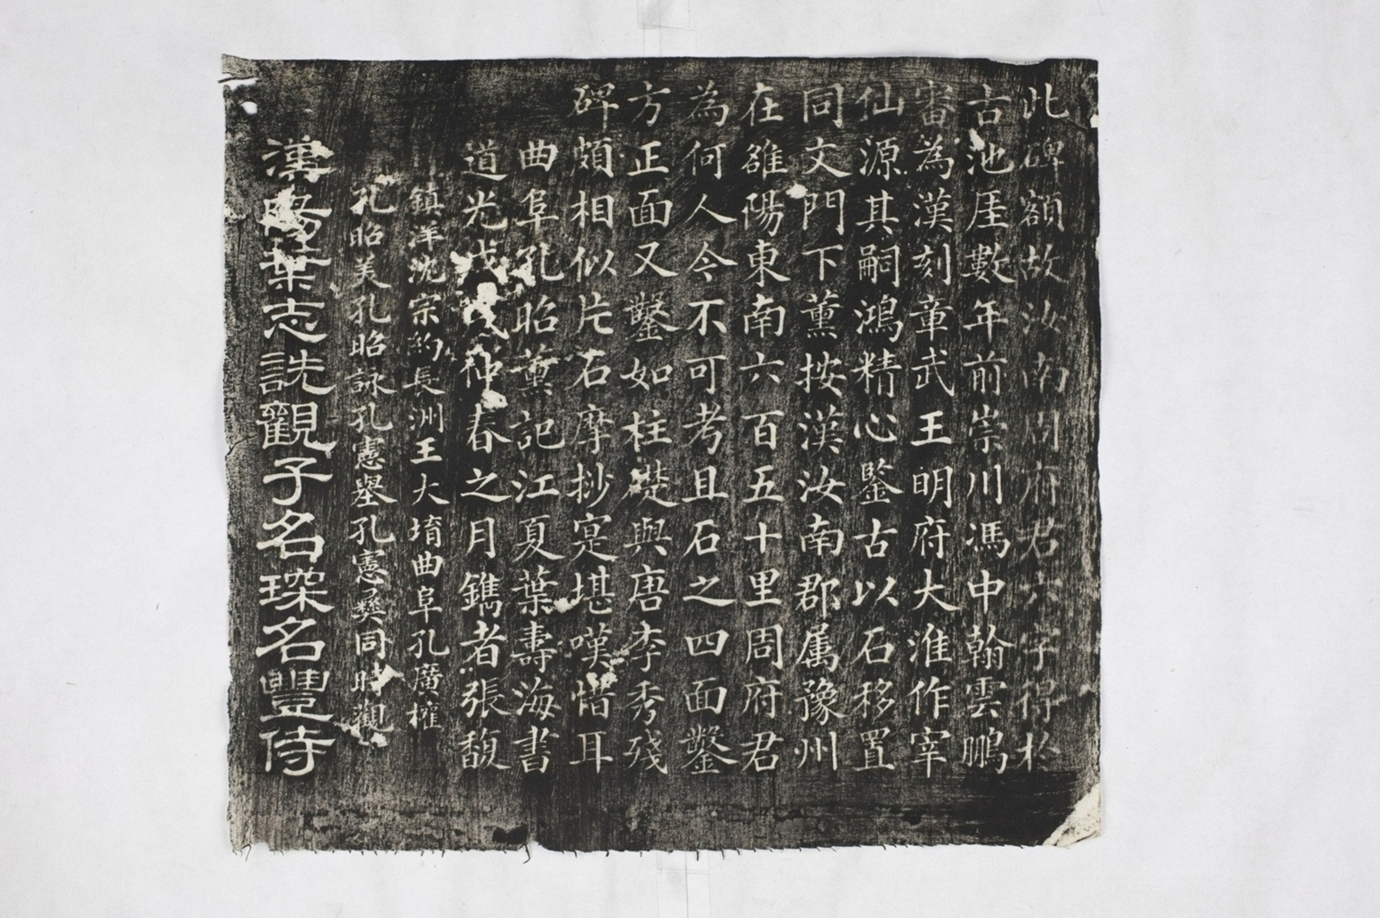 此碑額故汝南周府君六字得於
古池厓數年前崇川馮中翰雲鵬
審為漢刻章武王明府大淮作宰
仙源其嗣鴻精心鑒古以石移置
同文門下薰按漢汝南郡属豫州
在雒陽東南六百五十里周府君
為何人今不可考且石之四面鑿
方正面又鑿如柱礎與唐李秀殘
碑頗相似片石摩抄寔堪嘆惜耳
曲阜孔昭薰記江夏葉壽海書
道光戊戌仲春之月鐫者張馥
鎮洋沈宗約長洲王大堉曲阜孔廣權
孔昭美孔昭詠孔憲壆孔憲彝同時觀
漢陽葉志詵觀子名琛名豐侍